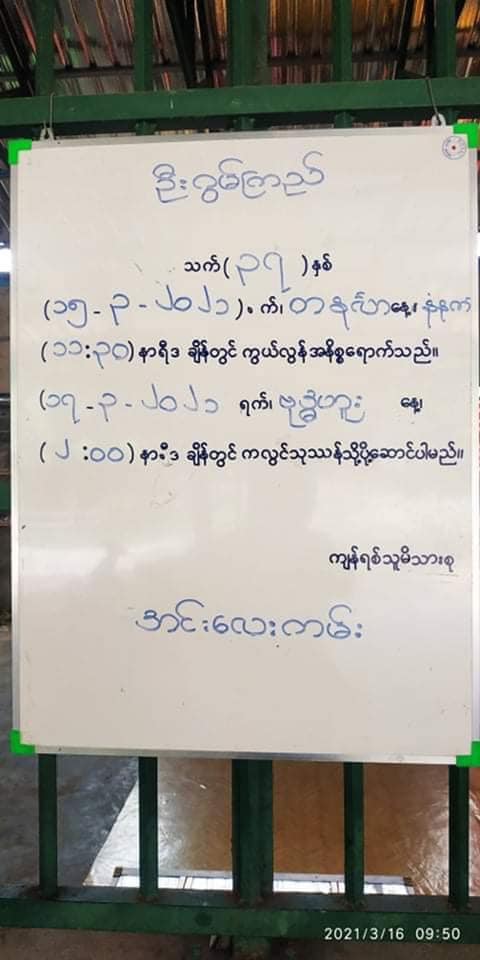 ဦးဂွမ်ကြည်
သက်(၃၇)နှစ်
(၁၅-၃-၂၀၂၁)ရက်၊ တနင်္လာနေ့၊ နံနက်
(၁၁:၃၀)နာရီဒ ချိန်တွင် ကွယ်လွန်အနိစ္စရောက်သည်။
(၁၇-၃-၂၀၂၁ ရက်၊ ဗုဒ္ဓဟူး နေ့၊
(၂:၀၀)နာရီဒ ချိန်တွင် ကလွင်သုဿန်သို့ပို့ဆောင်ပါမည်။
ကျန်ရစ်သူမိသားစု
အင်းလေးကမ်း
2021/3/16 09:50